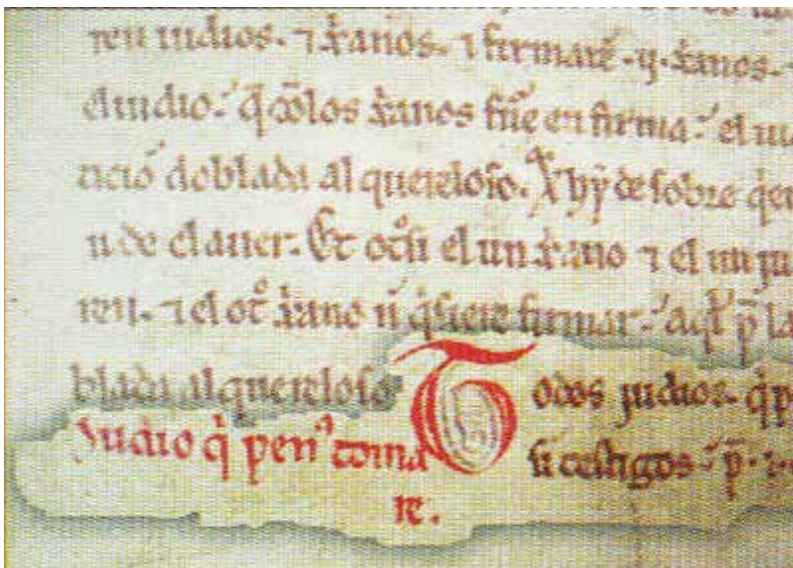 ren iudios. ⁊ xanos. ⁊ firmarē. ij. xanos.
el iudio. q̄ ꝯ los xanos en firma. el iu
cició doblada alquereloso. hy de sobre
u de el auer. Et otsi el un xano ⁊ el un ju
ren. ⁊ el ot xano n̄ q̄siere firmar. aql p̄ la
blada al quereloso Todos judios. q̄ p
Judio q̄ pen̉ toma si testigos. p̄.
re.